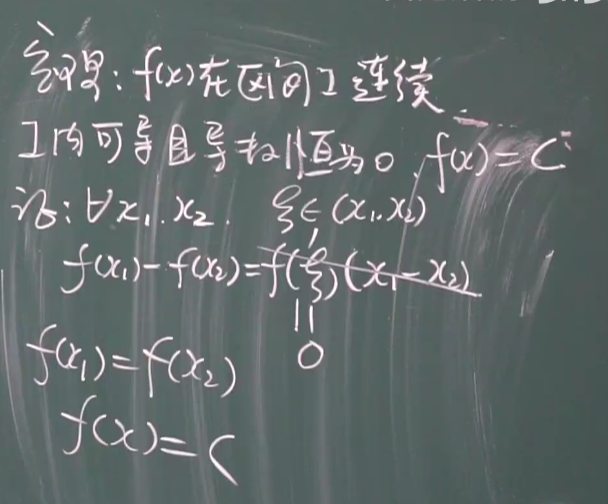 定理：f(x)在区间I连续
I内可导且导数恒为0，f(x)=C
证：∀x₁.x₂. ξ∈(x₁.x₂)
f(x₁)-f(x₂)=f'(ξ)(x₁-x₂)
||
0
f(x₁)=f(x₂)
f(x)=C